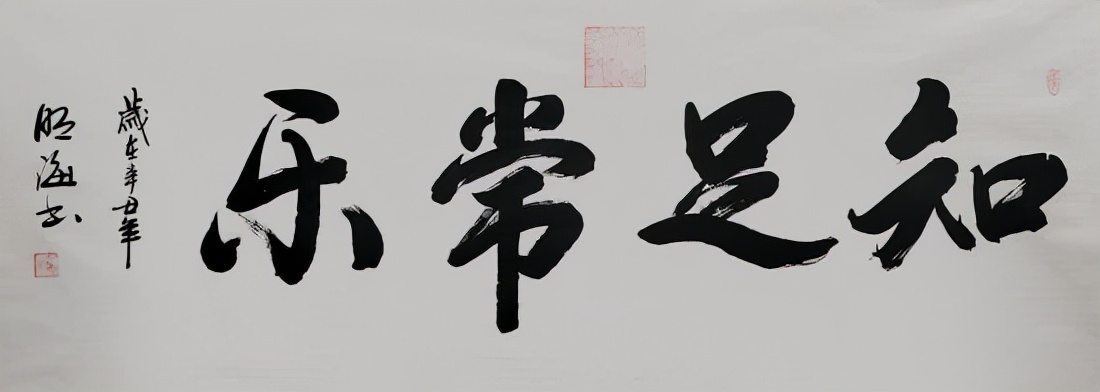 知足常乐
歲在辛丑年
明海书